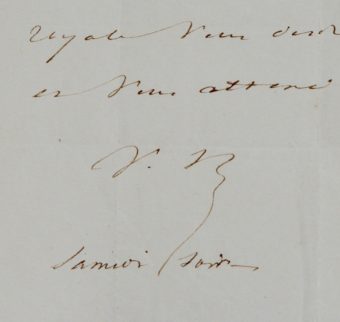 royale vous
et vous attend
V. H
Samedi soir